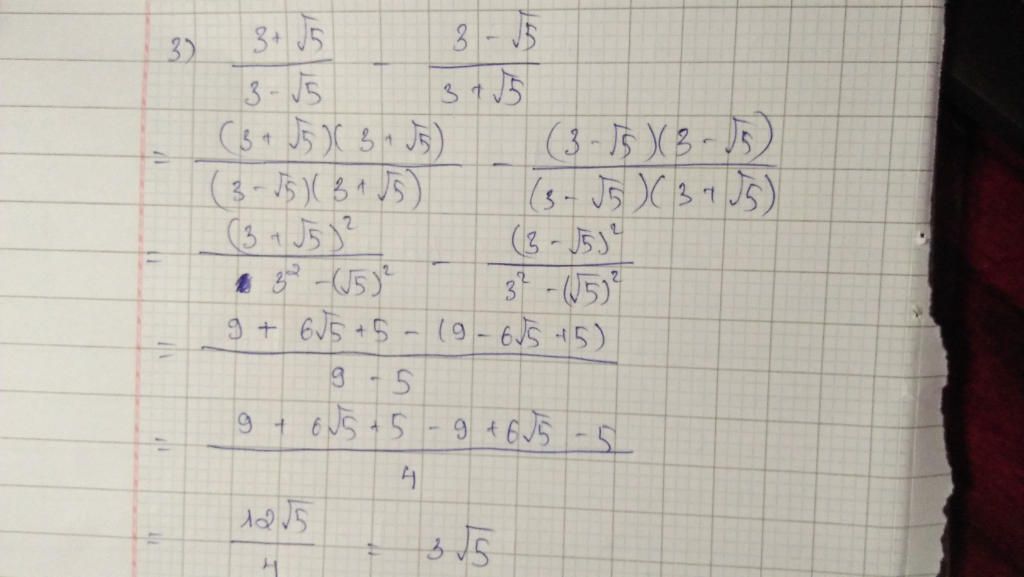 3) (3+√5)/(3-√5) - (3-√5)/(3+√5)
= ((3+√5)(3+√5))/((3-√5)(3+√5)) - ((3-√5)(3-√5))/((3-√5)(3+√5))
= (3+√5)²/(3²-(√5)²) - (3-√5)²/(3²-(√5)²)
= (9+6√5+5-(9-6√5+5))/(9-5)
= (9+6√5+5-9+6√5-5)/4
= 12√5/4 = 3√5